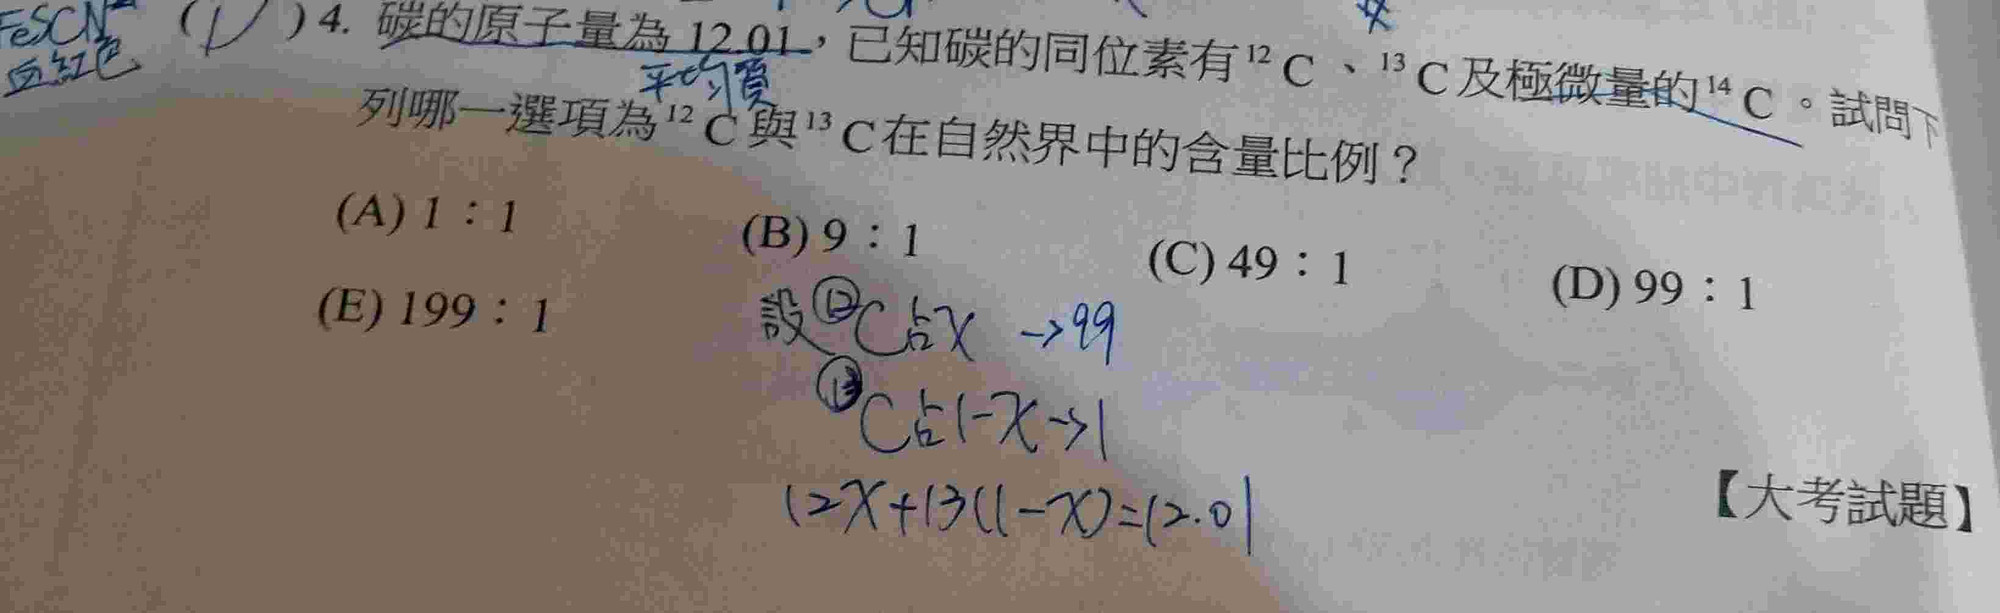 FeSCN²⁺
血紅色
(D)4. 碳的原子量為 12.01,已知碳的同位素有¹²C、¹³C及極微量的¹⁴C。試問下
平均質
列哪一選項為¹²C與¹³C在自然界中的含量比例?
(A) 1:1 (B) 9:1 (C) 49:1 (D) 99:1
(E) 199:1
設¹²C占x →99
¹³C占1-x→1
12x+13(1-x)=12.01
【大考試題】